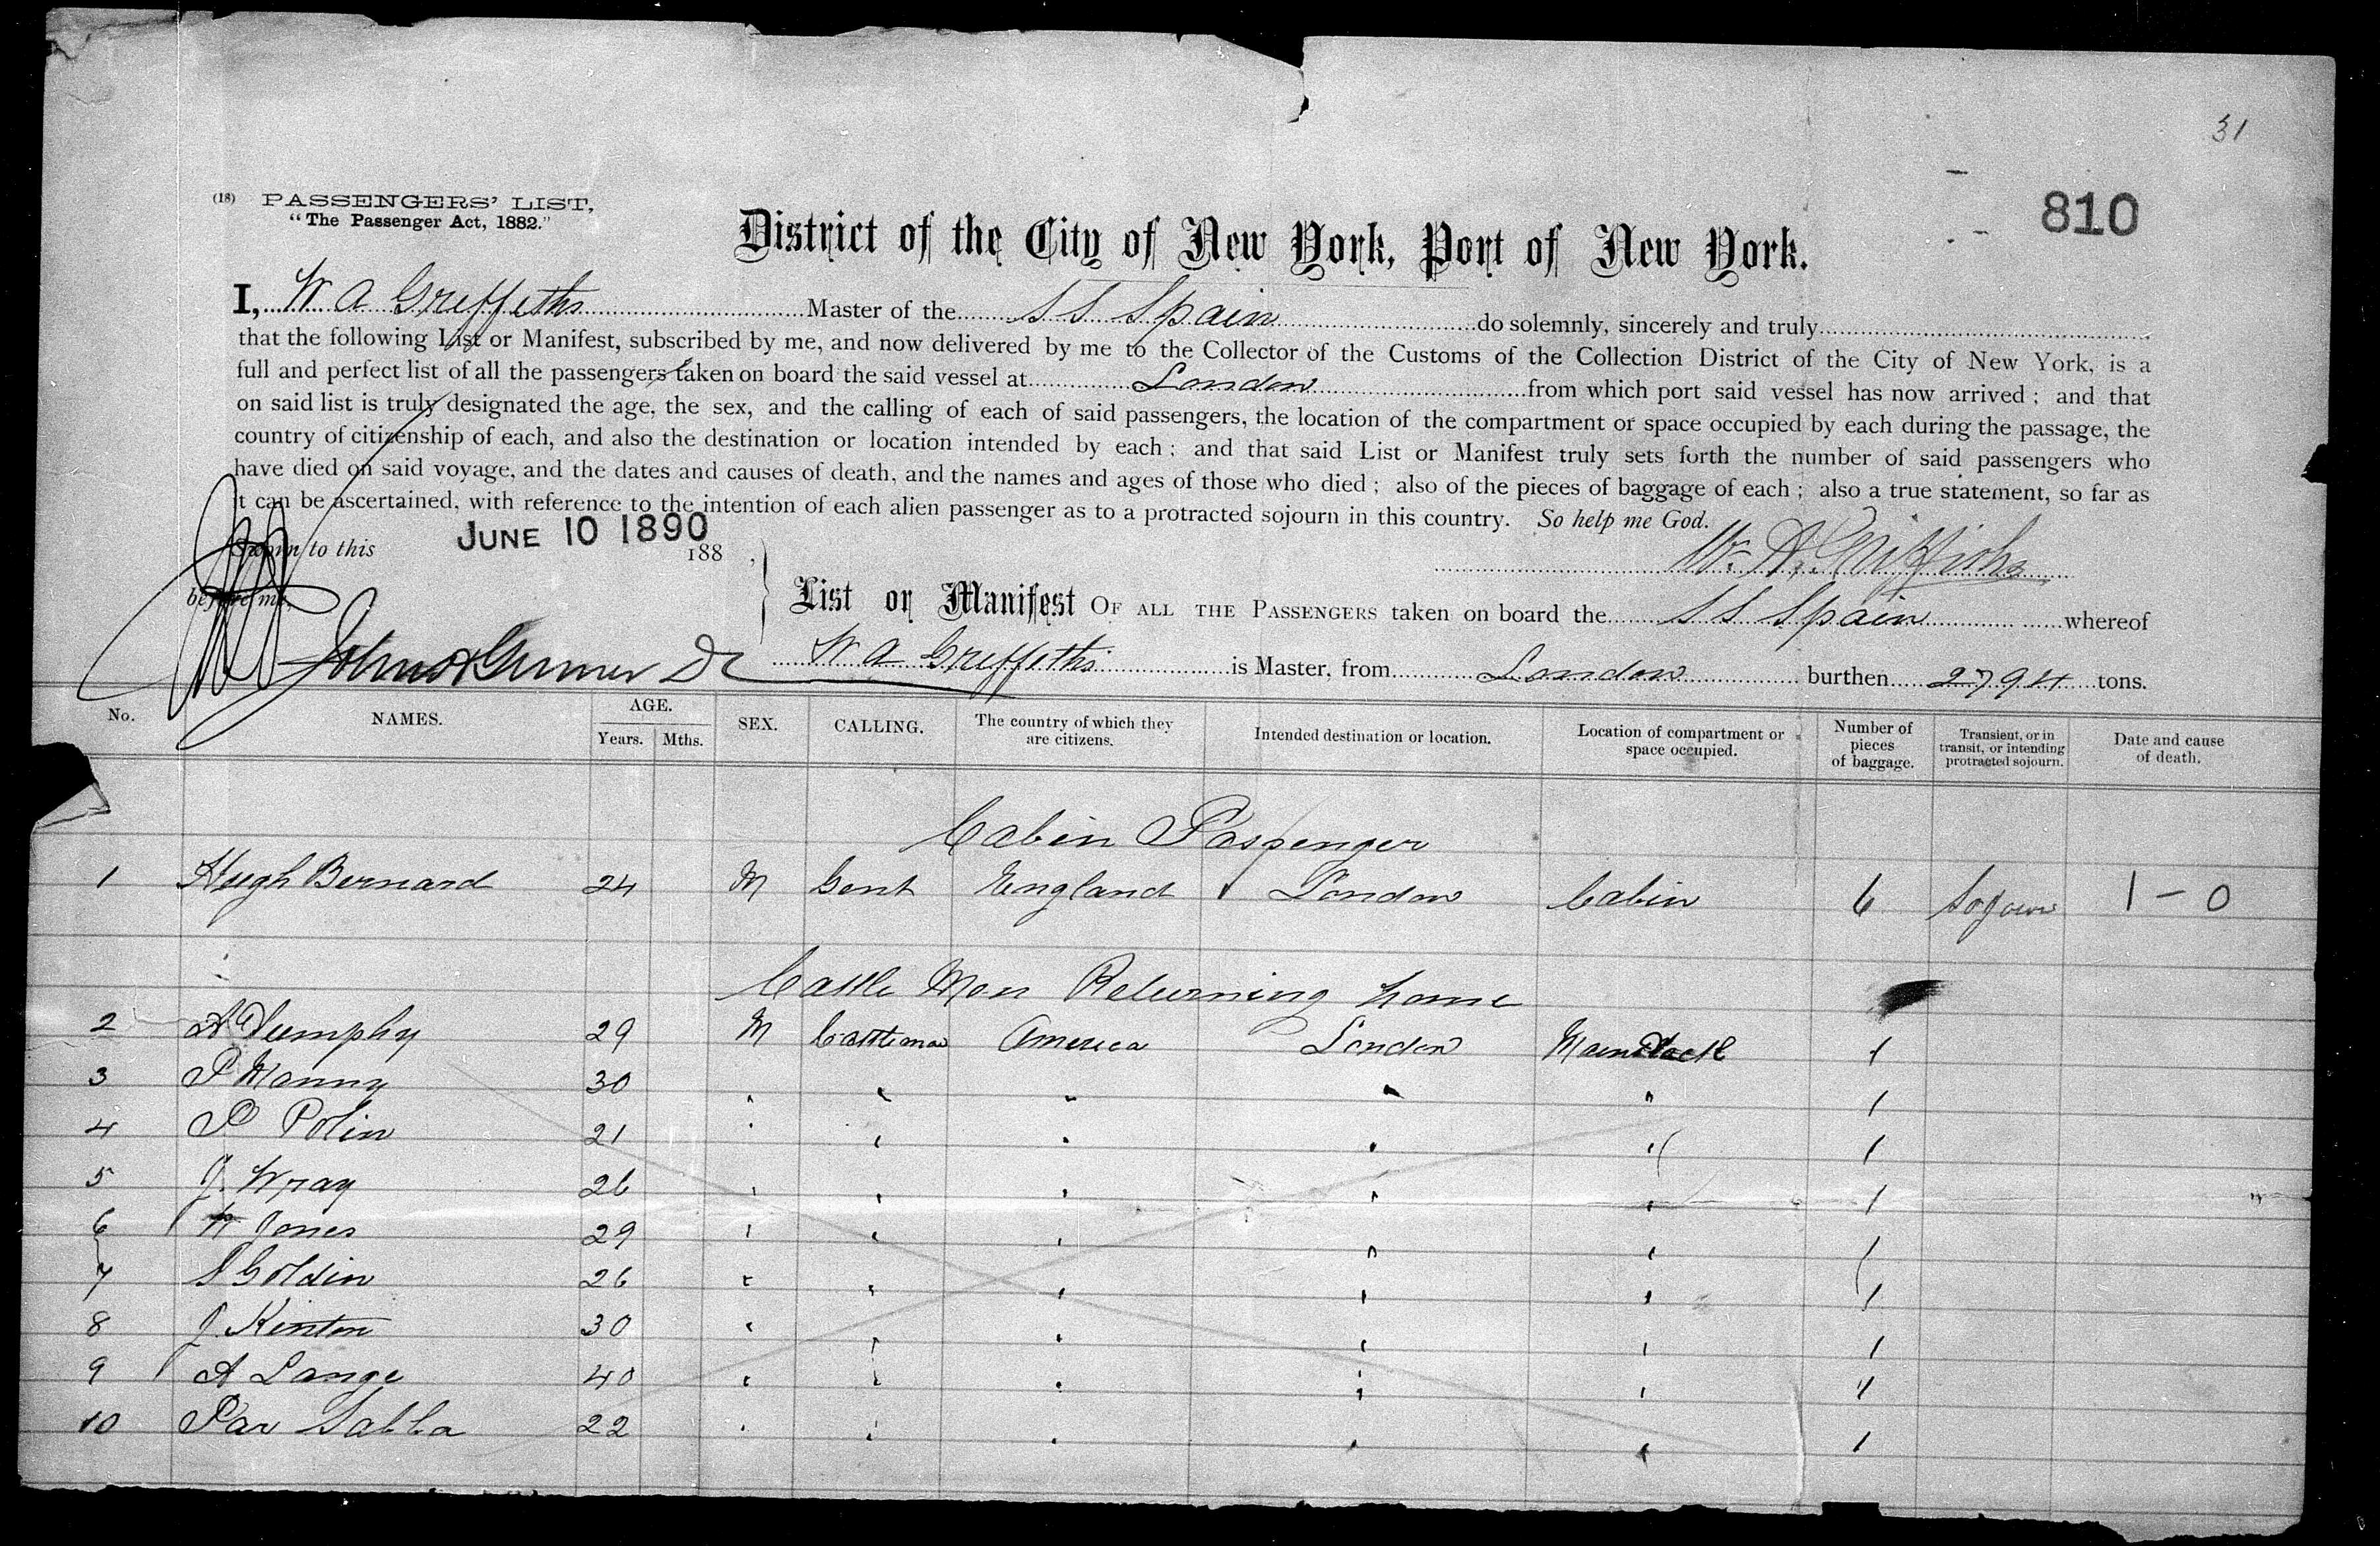 31
810
(18) PASSENGERS' LIST,
"The Passenger Act, 1882."
District of the City of New York, Port of New York.
I, W. A Griffeths Master of the S S Spain do solemnly, sincerely and truly
that the following List or Manifest, subscribed by me, and now delivered by me to the Collector of the Customs of the Collection District of the City of New York, is a
full and perfect list of all the passengers taken on board the said vessel at London from which port said vessel has now arrived; and that
on said list is truly designated the age, the sex, and the calling of each of said passengers, the location of the compartment or space occupied by each during the passage, the
country of citizenship of each, and also the destination or location intended by each; and that said List or Manifest truly sets forth the number of said passengers who
have died on said voyage, and the dates and causes of death, and the names and ages of those who died; also of the pieces of baggage of each; also a true statement, so far as
it can be ascertained, with reference to the intention of each alien passenger as to a protracted sojourn in this country. So help me God.
Sworn to this JUNE 10 1890 188 ,
W. A. Griffiths
before me,
List or Manifest OF ALL THE PASSENGERS taken on board the S S Spain whereof
W A Griffeths is Master, from London burthen 2794 tons.
No. NAMES. AGE. Years. Mths. SEX. CALLING. The country of which they are citizens. Intended destination or location. Location of compartment or space occupied. Number of pieces of baggage. Transient, or in transit, or intending protracted sojourn. Date and cause of death.
Cabin Passenger
1 Hugh Bernard 24 M Gent England London Cabin 6 Sojourn 1 - 0
Cattle Men Returning home
2 A Dumphy 29 M Cattleman America London Main Deck 1
3 P Manny 30 " " " " " 1
4 P Polin 21 " " " " " 1
5 J. Wray 26 " " " " " 1
6 Jones 29 " " " " " 1
7 S Goldin 26 " " " " " 1
8 J. Kinton 30 " " " " " 1
9 A Lange 40 " " " " " 1
10 22 " " " " " 1